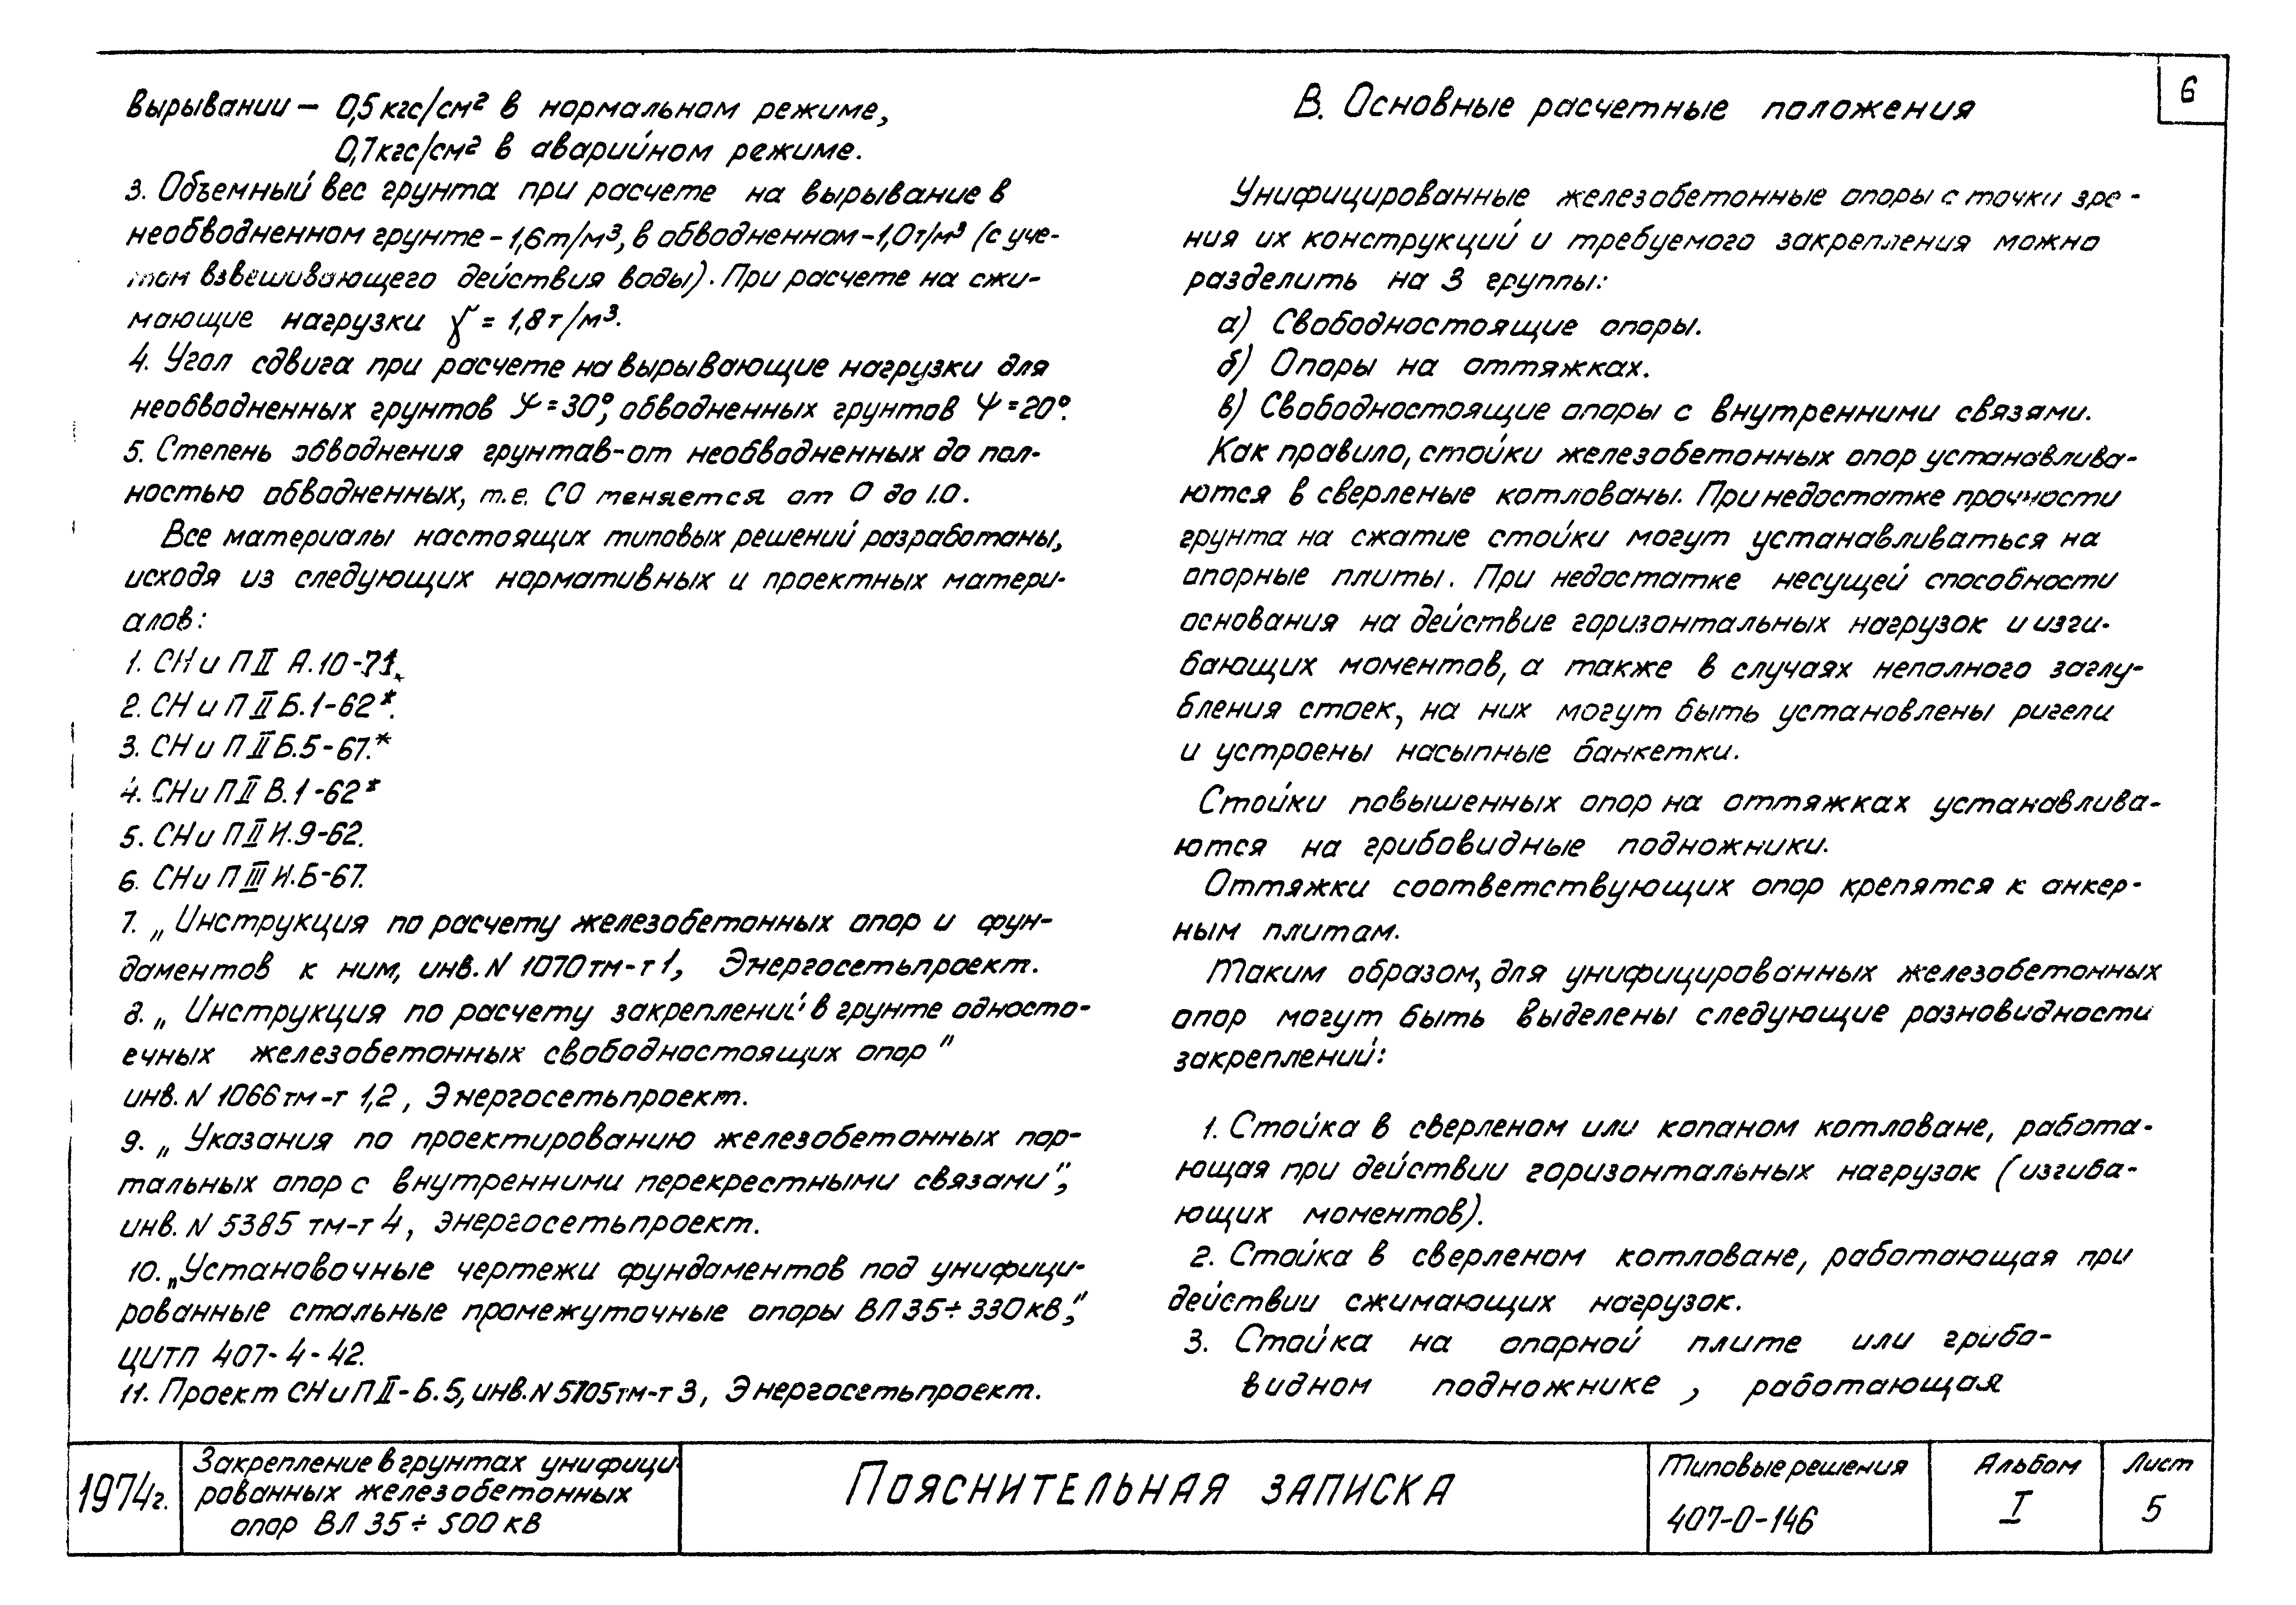 вырывании — 0,5 кгс/см² в нормальном режиме,
0,7 кгс/см² в аварийном режиме.
3. Объемный вес грунта при расчете на вырывание в
необводненном грунте - 1,6 т/м³, в обводненном - 1,0 т/м³ (с уче-
том взвешивающего действия воды). При расчете на сжи-
мающие нагрузки γ = 1,8 т/м³.
4. Угол сдвига при расчете на вырывающие нагрузки для
необводненных грунтов Ψ = 30°, обводненных грунтов Ψ = 20°.
5. Степень обводнения грунтов - от необводненных до пол-
ностью обводненных, т.е. СО меняется от 0 до 1.0.
Все материалы настоящих типовых решений разработаны,
исходя из следующих нормативных и проектных матери-
алов:
1. СН и П II А.10-71.
2. СН и П II Б.1-62*.
3. СН и П II Б.5-67.*
4. СН и П II В.1-62*
5. СН и П II И.9-62.
6. СН и П III И.Б-67.
7. „Инструкция по расчету железобетонных опор и фун-
даментов к ним, инв. N 1070 тм-т1, Энергосетьпроект.
8. „Инструкция по расчету закреплений в грунте односто-
ечных железобетонных свободностоящих опор"
инв. N 1066 тм-т 1,2, Энергосетьпроект.
9. „Указания по проектированию железобетонных пор-
тальных опор с внутренними перекрестными связами",
инв. N 5385 тм-т 4, Энергосетьпроект.
10. „Установочные чертежи фундаментов под унифици-
рованные стальные промежуточные опоры ВЛ 35÷330 кВ",
ЦИТП 407-4-42.
11. Проект СН и П II-Б.5, инв. N 5705 тм-т 3, Энергосетьпроект.
6
В. Основные расчетные положения
Унифицированные железобетонные опоры с точки зре-
ния их конструкций и требуемого закрепления можно
разделить на 3 группы:
а) Свободностоящие опоры.
б) Опоры на оттяжках.
в) Свободностоящие опоры с внутренними связями.
Как правило, стойки железобетонных опор устанавлива-
ются в сверленые котлованы. При недостатке прочности
грунта на сжатие стойки могут устанавливаться на
опорные плиты. При недостатке несущей способности
основания на действие горизонтальных нагрузок и изги-
бающих моментов, а также в случаях неполного заглу-
бления стоек, на них могут быть установлены ригели
и устроены насыпные банкетки.
Стойки повышенных опор на оттяжках устанавлива-
ются на грибовидные подножники.
Оттяжки соответствующих опор крепятся к анкер-
ным плитам.
Таким образом, для унифицированных железобетонных
опор могут быть выделены следующие разновидности
закреплений:
1. Стойка в сверленом или копаном котловане, работа-
ющая при действии горизонтальных нагрузок (изгиба-
ющих моментов).
2. Стойка в сверленом котловане, работающая при
действии сжимающих нагрузок.
3. Стойка на опорной плите или грибо-
видном подножнике, работающая
1974г.
Закрепление в грунтах унифици-
рованных железобетонных
опор ВЛ 35÷500 кВ
Пояснительная записка
Типовые решения
407-0-146
Альбом
I
Лист
5